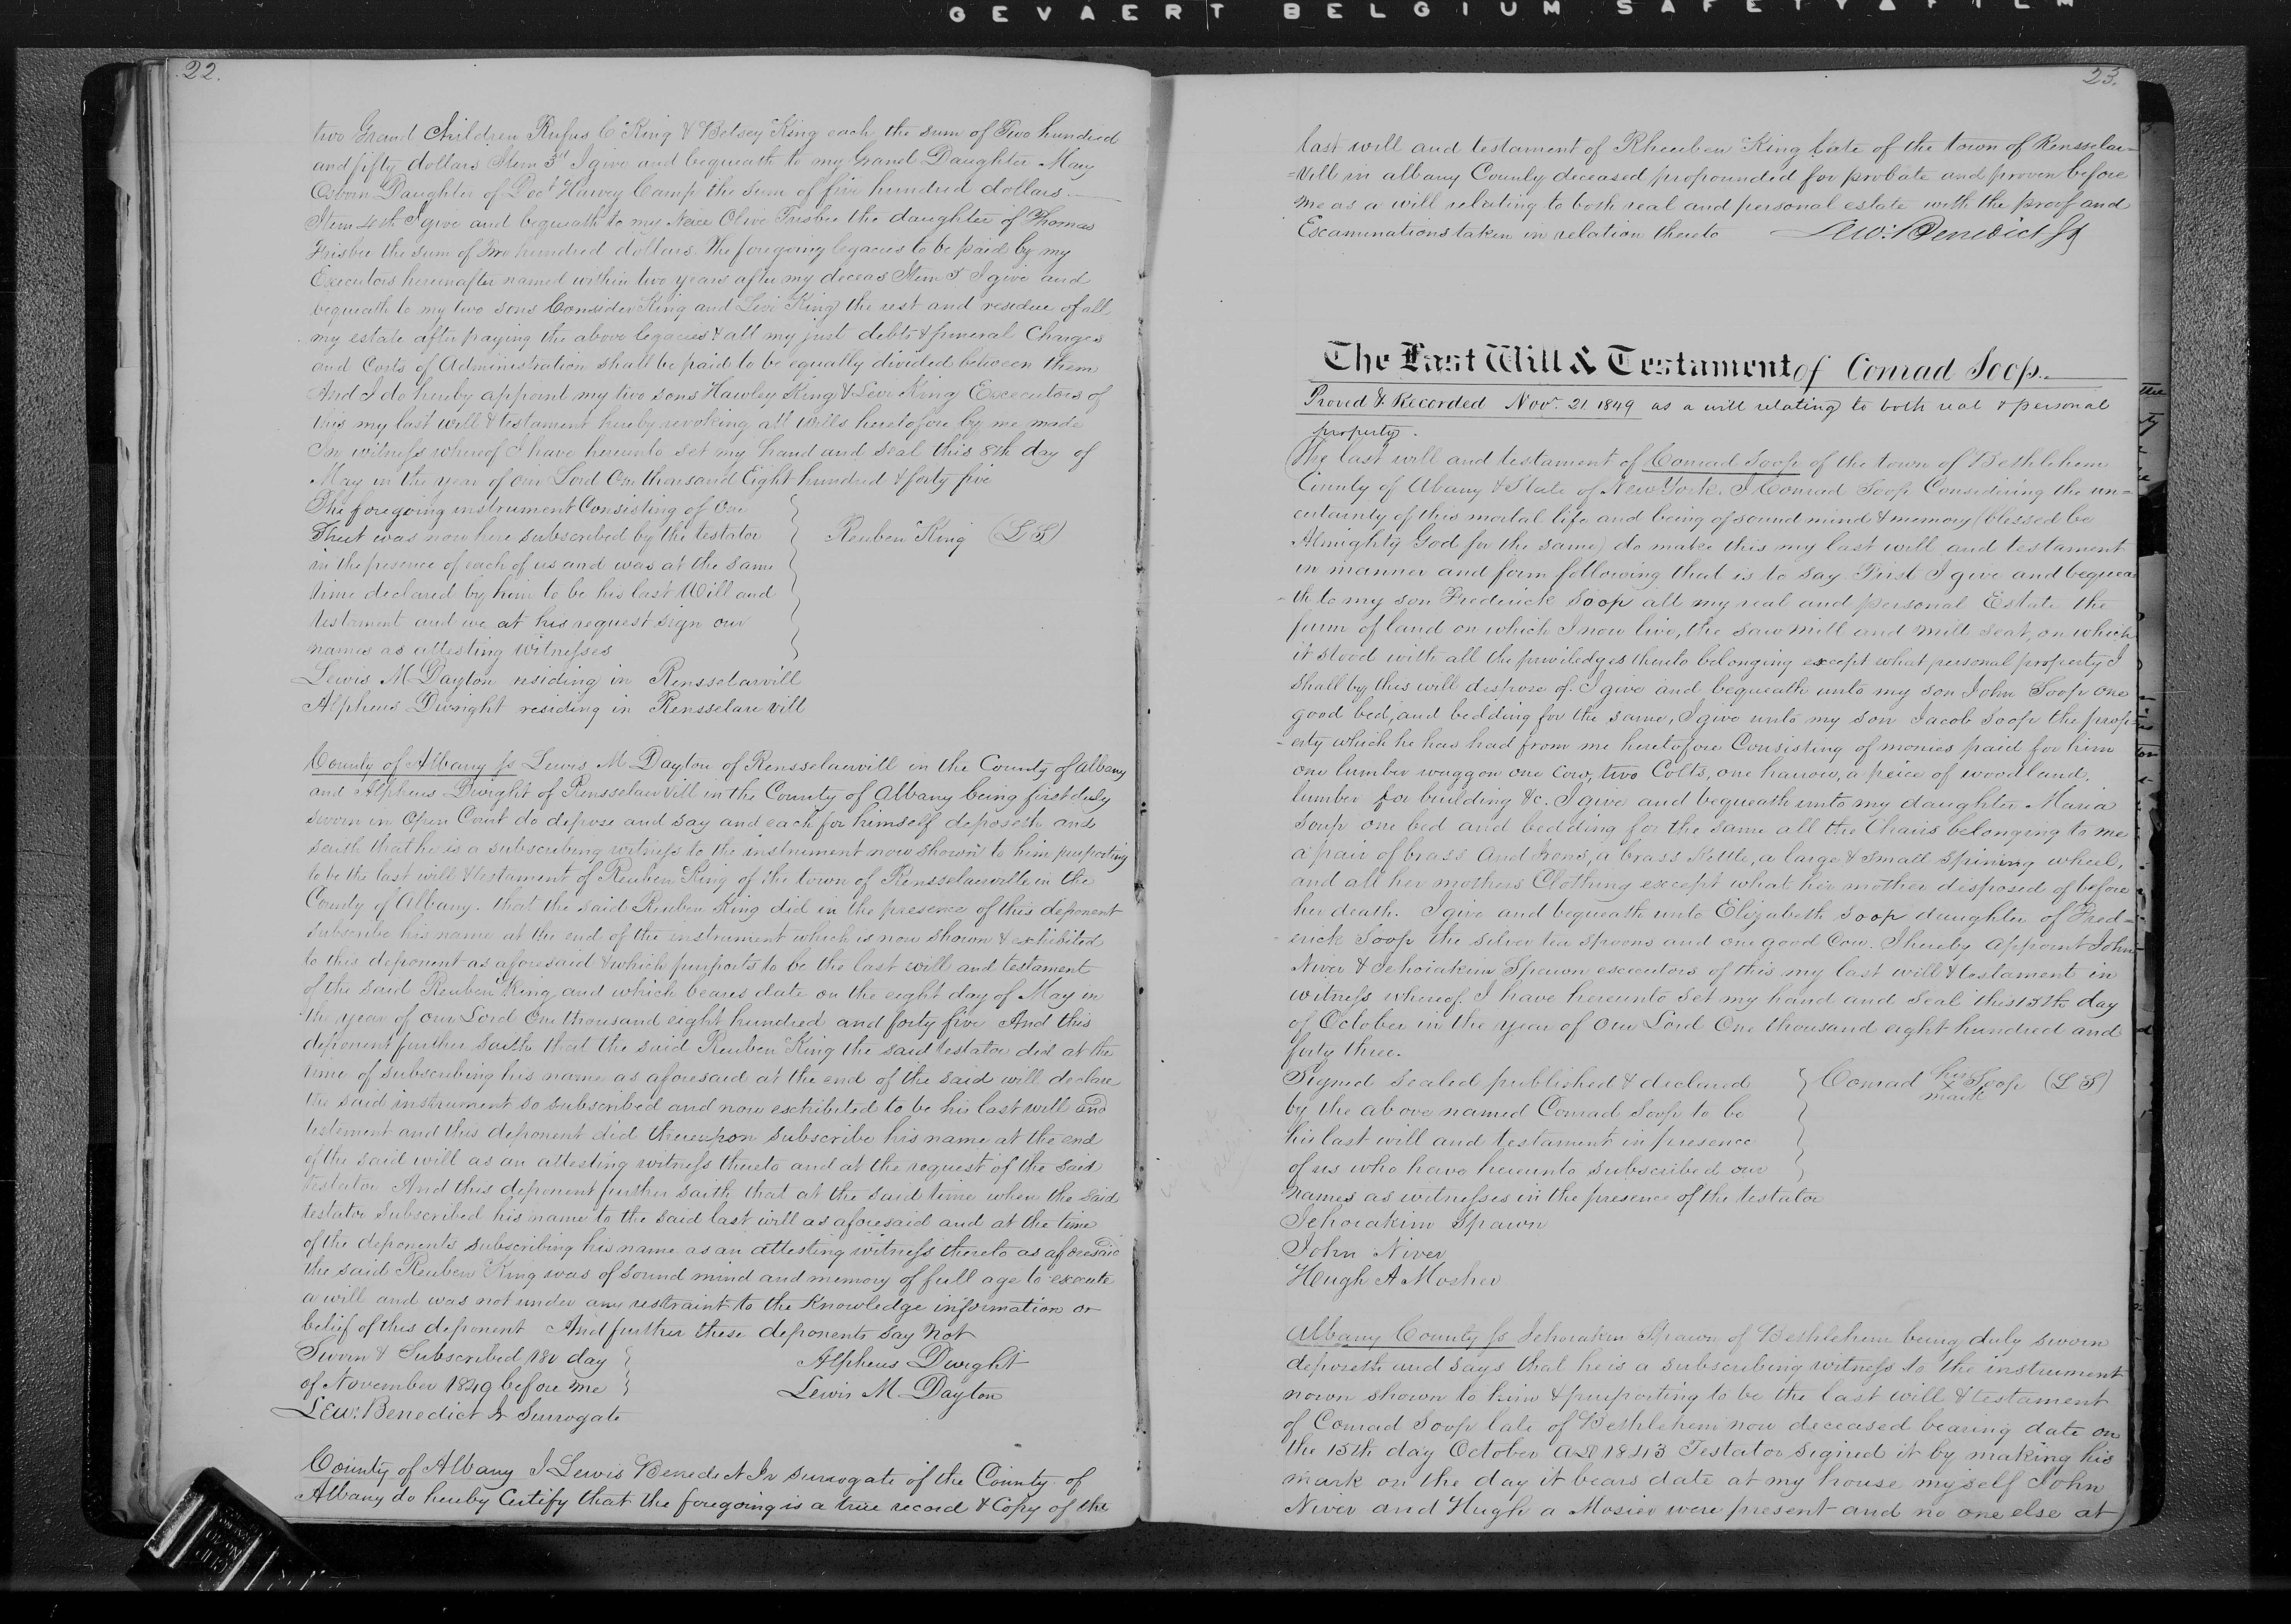 GEVAERT BELGIUM SAFETY FILM
22.
two Grand Children Rufus C King & Betsey King each the sum of Two hundred
and fifty dollars Item 3d I give and bequeath to my Grand Daughter Mary
Osborn Daughter of Doct Harvey Camp the sum of five hundred dollars
Item 4th I give and bequeath to my Neice Olive Frisbee the daughter of Thomas
Frisbee the sum of Two hundred dollars. The foregoing legacies to be paid by my
Executors hereinafter named within two years after my deceas Item 5 I give and
bequeath to my two sons Consider King and Levi King the rest and residue of all
my estate after paying the above legacies & all my just debts & funeral Charges
and Costs of Administration shall be paid to be equally divided between them
And I do hereby appoint my two sons Hawley King & Levi King Excecutors of
this my last will & testament hereby revoking all wills heretofore by me made
In witness whereof I have hereunto set my hand and seal this 8th day of
May in the year of our Lord One thousand Eight hundred & forty five
The foregoing instrument Consisting of One
Sheet was now here subscribed by the testator
in the presence of each of us and was at the same
time declared by him to be his last Will and
testament and we at his request sign our
names as attesting Witnesses
Reuben King (L S)
Lewis M Dayton residing in Rensselarvill
Alpheus Dwight residing in Rensselare vill
County of Albany ss Lewis M Dayton of Rensselaervill in the County of Albany
and Alpheus Dwight of Rensselaer Vill in the County of Albany being first duly
sworn in Open Court do depose and say and each for himself deposeth and
saith that he is a subscribing witness to the instrument now shown to him purporting
to be the last will & testament of Reuben King of the town of Rensselaerville in the
County of Albany. that the said Reuben King did in the presence of this deponent
subscribe his name at the end of the instrument which is now shown & exhibited
to this deponent as aforesaid & which purports to be the last will and testament
of the said Reuben King and which beares date on the eight day of May in
the year of our Lord One thousand eight hundred and forty five And this
deponent further saith that the said Reuben King the said testator did at the
time of subscribing his name as aforesaid at the end of the said will declare
the said instrument so subscribed and now exchibited to be his last will and
testement and this deponent did thereupon subscribe his name at the end
of the said will as an attesting witness thereto and at the request of the said
testator And this deponent further saith that at the said time when the said
testator subscribed his name to the said last will as aforesaid and at the time
of the deponents subscribing his name as an attesting witness thereto as aforesaid
the said Reuben King was of sound mind and memory of full age to execute
a will and was not under any restraint to the Knowledge information or
belief of this deponent And further these deponents say not
Sworn & Subscribed 180 day
of November 1849 before me
Lew: Benedict Jr Surrogate
Alpheus Dwight
Lewis M Dayton
County of Albany I Lewis Benedict Jr surrogate of the County of
Albany do hereby Certify that the foregoing is a true record & Copy of the
23.
last will and testament of Rheuben King late of the town of Rensselaer=
=vill in albany County deceased propounded for probate and proven before
me as a will relating to both real and personal estate with the proof and
Excaminations taken in relation thereto Lew: Benedict Jr
The Last Will & Testament of Conrad Soop.
Proved & Recorded Nov. 21 1849 as a will relating to both real & personal
property.
The last will and testament of Conrad Soop of the town of Bethlehem
County of Albany & State of New York. I Conrad Soop Considering the un=
certainty of this mortal life and being of sound mind & memory (blessed be
Almighty God for the same) do make this my last will and testament
in manner and form following that is to say. First I give and bequea
-th to my son Frederick Soop all my real and personal Estate the
farm of land on which I now live, the saw mill and mill seat, on which
it stood with all the priviledges thereto belonging except what personal property I
shall by this will dispose of. I give and bequeath unto my son John Soop one
good bed, and bedding for the same, I give unto my son Jacob Soop the prop=
-erty which he has had from me heretofore Consisting of monies paid for him
one lumber waggon one Cow, two Colts, one harrow, a peice of woodland,
lumber for building &c. I give and bequeath unto my daughter Maria
Soop one bed and bedding for the same all the Chairs belonging to me
a pair of brass And Irons, a brass Kettle, a large & small spining wheel,
and all her mothers Clothing except what her mother disposed of before
her death. I give and bequeath unto Elizabeth Soop daughter of Fred=
-erick Soop the silver tea spoons and one good Cow. I hereby appoint John
Niver & Jehoiakim Spawn excecutors of this my last will & testament in
witness whereof I have hereunto set my hand and seal this 15th day
of October in the year of Our Lord One thousand eight hundred and
forty three.
Signed sealed published & declared
by the above named Conrad Soop to be
his last will and testament in presence
of us who have hereunto subscribed our
names as witnesses in the presence of the testator
Conrad his x mark Soop (L S)
Jehoiakim Spawn
John Niver
Hugh A Mosher
Albany County ss Jehoiakim Spawn of Bethlehem being duly sworn
deposeth and says that he is a subscribing witness to the instrument
nown shown to him & purporting to be the last will & testament
of Conrad Soop late of Bethlehem now deceased bearing date on
the 15th day October AD 1843 Testator signed it by making his
mark on the day it bears date at my house myself John
Niver and Hugh a Mosier were present and no one else at